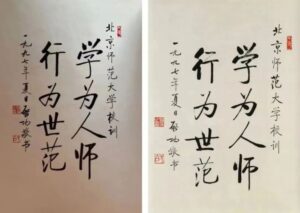 北京师范大学校训
学为人师
行为世范
一九九七年夏 启功敬书
北京师范大学校训
学为人师
行为世范
一九九七年夏日 启功敬书